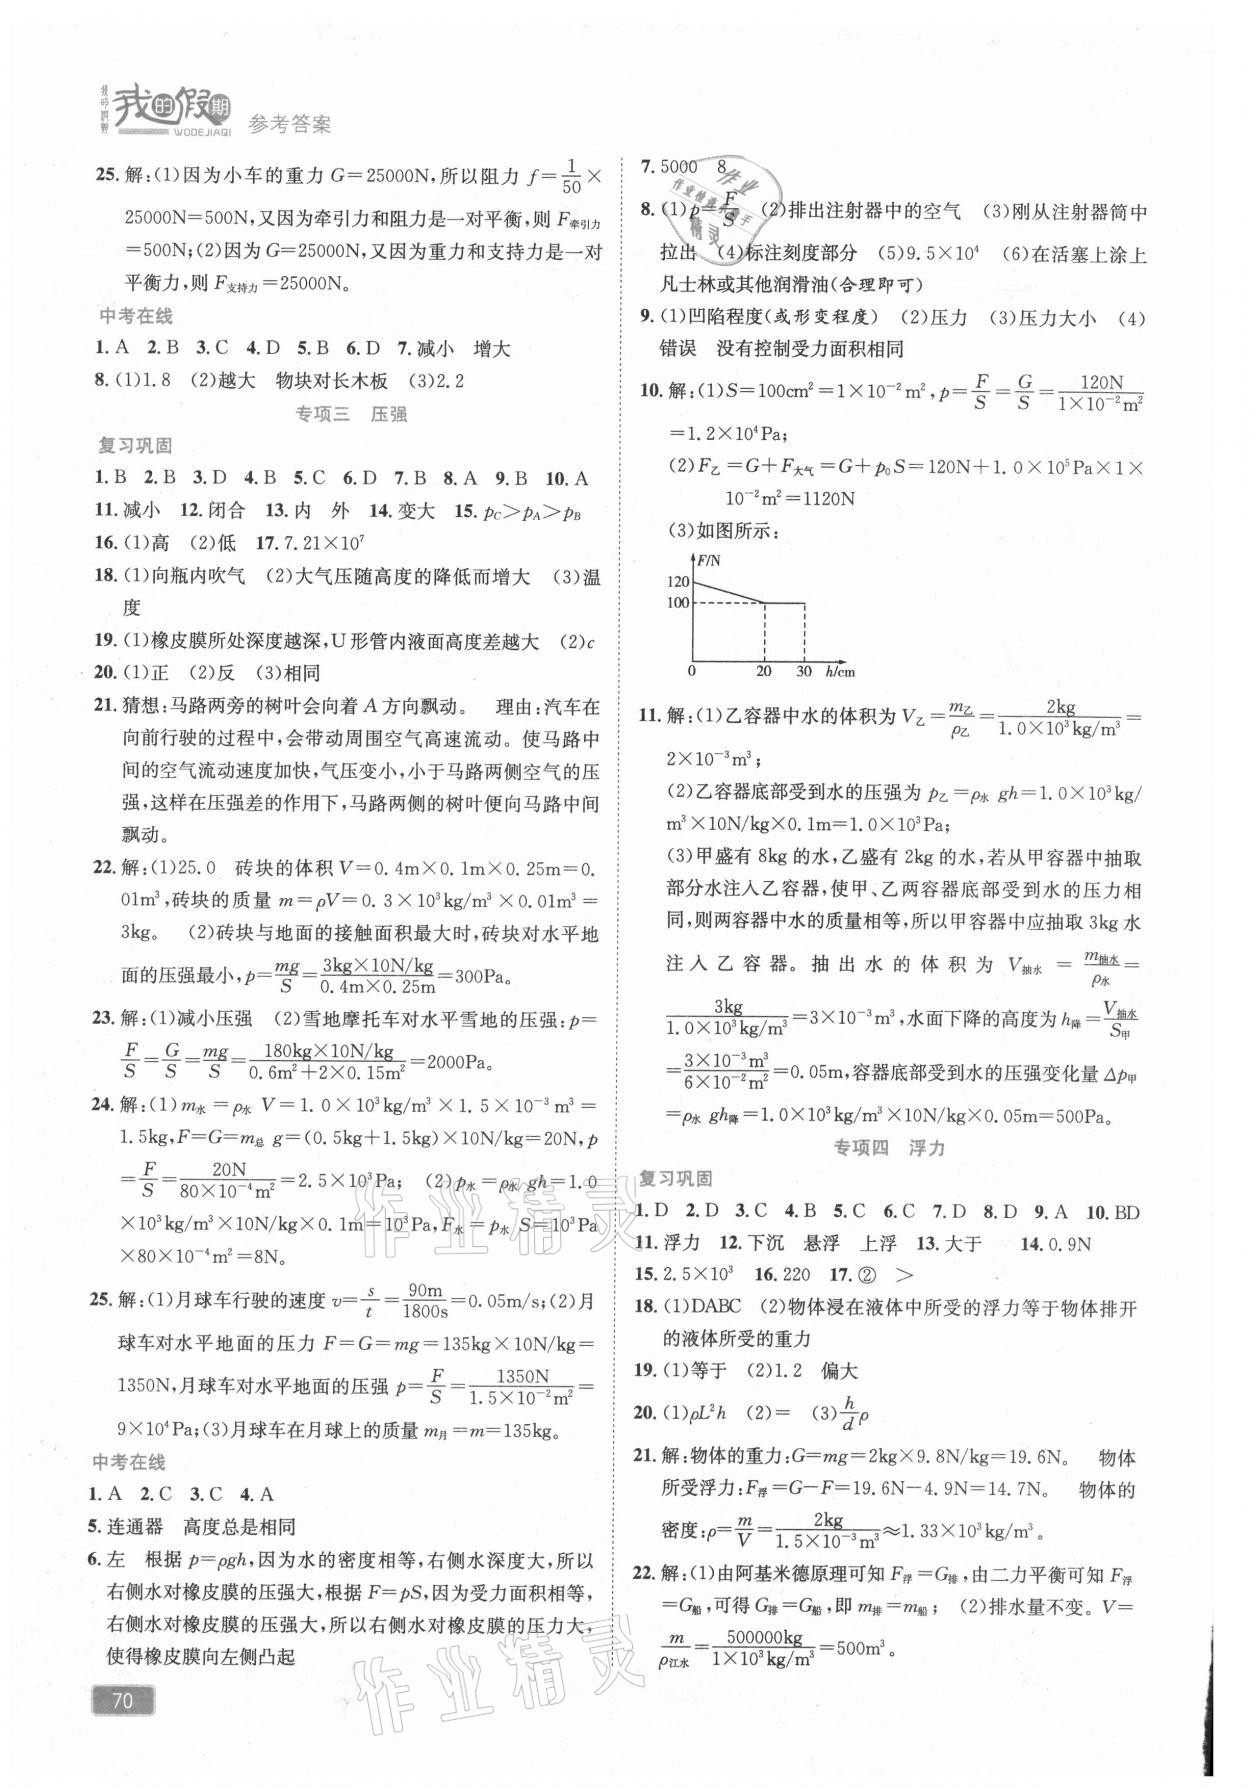 我的假期
我的假期 WODEJIAQI 参考答案
25.解:(1)因为小车的重力 G=25000N,所以阻力 f=1/50×
25000N=500N,又因为牵引力和阻力是一对平衡,则 F牵引力
=500N;(2)因为 G=25000N,又因为重力和支持力是一对
平衡力,则 F支持力=25000N。
中考在线
1.A 2.B 3.C 4.D 5.B 6.D 7.减小 增大
8.(1)1.8 (2)越大 物块对长木板 (3)2.2
专项三 压强
复习巩固
1.B 2.B 3.D 4.B 5.C 6.D 7.B 8.A 9.B 10.A
11.减小 12.闭合 13.内 外 14.变大 15.pC>pA>pB
16.(1)高 (2)低 17.7.21×10⁷
18.(1)向瓶内吹气 (2)大气压随高度的降低而增大 (3)温
度
19.(1)橡皮膜所处深度越深,U形管内液面高度差越大 (2)c
20.(1)正 (2)反 (3)相同
21.猜想:马路两旁的树叶会向着 A 方向飘动。 理由:汽车在
向前行驶的过程中,会带动周围空气高速流动。使马路中
间的空气流动速度加快,气压变小,小于马路两侧空气的压
强,这样在压强差的作用下,马路两侧的树叶便向马路中间
飘动。
22.解:(1)25.0 砖块的体积 V=0.4m×0.1m×0.25m=0.
01m³,砖块的质量 m=ρV=0.3×10³kg/m³×0.01m³=
3kg。 (2)砖块与地面的接触面积最大时,砖块对水平地
面的压强最小,p=mg/S=3kg×10N/kg/0.4m×0.25m=300Pa。
23.解:(1)减小压强 (2)雪地摩托车对水平雪地的压强:p=
F/S=G/S=mg/S=180kg×10N/kg/0.6m²+2×0.15m²=2000Pa。
24.解:(1)m水=ρ水 V=1.0×10³kg/m³×1.5×10⁻³m³=
1.5kg,F=G=m总 g=(0.5kg+1.5kg)×10N/kg=20N,p
=F/S=20N/80×10⁻⁴m²=2.5×10³Pa; (2)p水=ρ水 gh=1.0
×10³kg/m³×10N/kg×0.1m=10³Pa,F水=p水 S=10³Pa
×80×10⁻⁴m²=8N。
25.解:(1)月球车行驶的速度 v=s/t=90m/1800s=0.05m/s;(2)月
球车对水平地面的压力 F=G=mg=135kg×10N/kg=
1350N,月球车对水平地面的压强 p=F/S=1350N/1.5×10⁻²m²=
9×10⁴Pa;(3)月球车在月球上的质量 m月=m=135kg。
中考在线
1.A 2.C 3.C 4.A
5.连通器 高度总是相同
6.左 根据 p=ρgh,因为水的密度相等,右侧水深度大,所以
右侧水对橡皮膜的压强大,根据 F=pS,因为受力面积相等,
右侧水对橡皮膜的压强大,所以右侧水对橡皮膜的压力大,
使得橡皮膜向左侧凸起
70
7.5000 8
8.(1)p=F/S (2)排出注射器中的空气 (3)刚从注射器筒中
拉出 (4)标注刻度部分 (5)9.5×10⁴ (6)在活塞上涂上
凡士林或其他润滑油(合理即可)
9.(1)凹陷程度(或形变程度) (2)压力 (3)压力大小 (4)
错误 没有控制受力面积相同
10.解:(1)S=100cm²=1×10⁻²m²,p=F/S=G/S=120N/1×10⁻²m²
=1.2×10⁴Pa;
(2)F乙=G+F大气=G+p₀S=120N+1.0×10⁵Pa×1×
10⁻²m²=1120N
(3)如图所示:
F/N
120
100
0 20 30 h/cm
11.解:(1)乙容器中水的体积为 V乙=m乙/ρ乙=2kg/1.0×10³kg/m³=
2×10⁻³m³;
(2)乙容器底部受到水的压强为 p乙=ρ水 gh=1.0×10³kg/
m³×10N/kg×0.1m=1.0×10³Pa;
(3)甲盛有8kg的水,乙盛有2kg的水,若从甲容器中抽取
部分水注入乙容器,使甲、乙两容器底部受到水的压力相
同,则两容器中水的质量相等,所以甲容器中应抽取3kg水
注入乙容器。抽出水的体积为 V抽水=m抽水/ρ水=
3kg/1.0×10³kg/m³=3×10⁻³m³,水面下降的高度为 h降=V抽水/S甲
=3×10⁻³m³/6×10⁻²m²=0.05m,容器底部受到水的压强变化量 Δp甲
=ρ水 gh降=1.0×10³kg/m³×10N/kg×0.05m=500Pa。
专项四 浮力
复习巩固
1.D 2.D 3.C 4.B 5.C 6.C 7.D 8.D 9.A 10.BD
11.浮力 12.下沉 悬浮 上浮 13.大于 14.0.9N
15.2.5×10³ 16.220 17.② >
18.(1)DABC (2)物体浸在液体中所受的浮力等于物体排开
的液体所受的重力
19.(1)等于 (2)1.2 偏大
20.(1)ρL²h (2)= (3)h/dρ
21.解:物体的重力:G=mg=2kg×9.8N/kg=19.6N。 物体
所受浮力:F浮=G−F=19.6N−4.9N=14.7N。 物体的
密度:ρ=m/V=2kg/1.5×10⁻³m³≈1.33×10³kg/m³。
22.解:(1)由阿基米德原理可知 F浮=G排,由二力平衡可知 F浮
=G船,可得 G排=G船,即 m排=m船; (2)排水量不变。V=
m/ρ江水=500000kg/1×10³kg/m³=500m³。
作业精灵
作业精灵